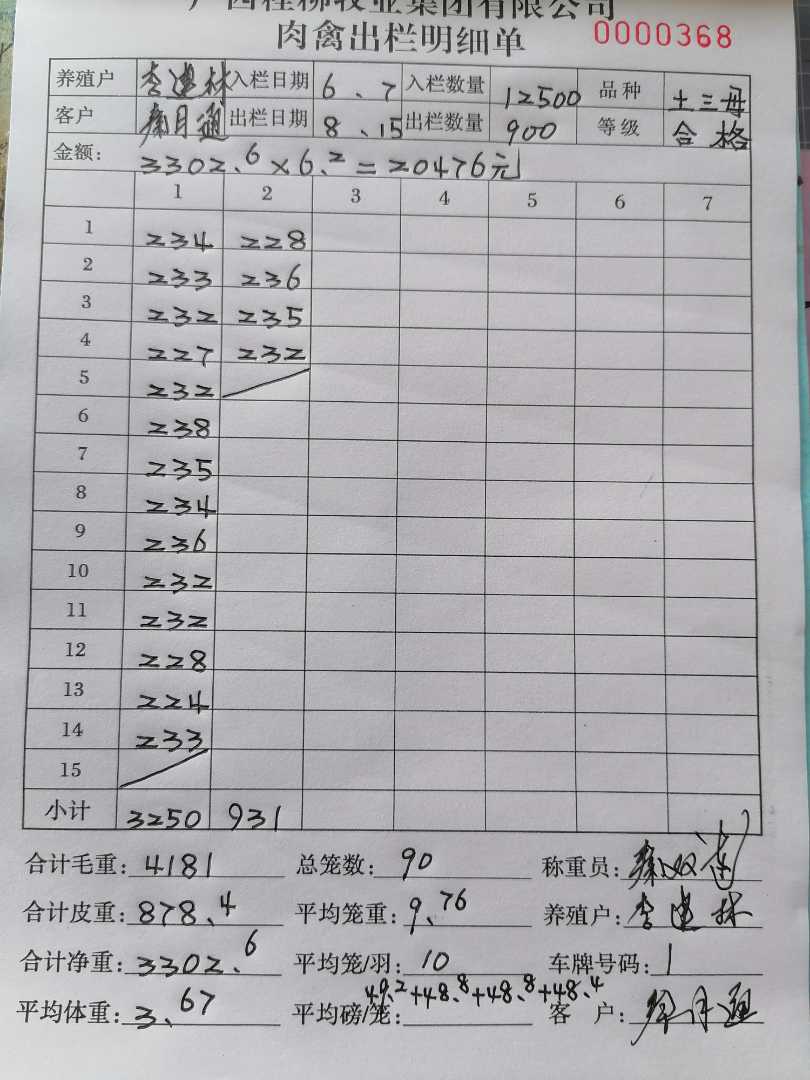 广西桂柳牧业集团有限公司
肉禽出栏明细单 0000368
养殖户 李建林 入栏日期 6、7 入栏数量 12500 品种 土三母
客户 秦月通 出栏日期 8、15 出栏数量 900 等级 合格
金额: 3302.6×6.2=20476元
1 2 3 4 5 6 7
1 234 228
2 233 236
3 232 235
4 227 232
5 232
6 238
7 235
8 234
9 236
10 232
11 232
12 228
13 224
14 233
15
小计 3250 931
合计毛重: 4181 总笼数: 90 称重员:
合计皮重: 878.4 平均笼重: 9.76 养殖户: 李建林
合计净重: 3302.6 平均笼/羽: 10 车牌号码: 1
平均体重: 3.67 平均磅/笼: 49.2+48.8+48.8+48.4 客户: